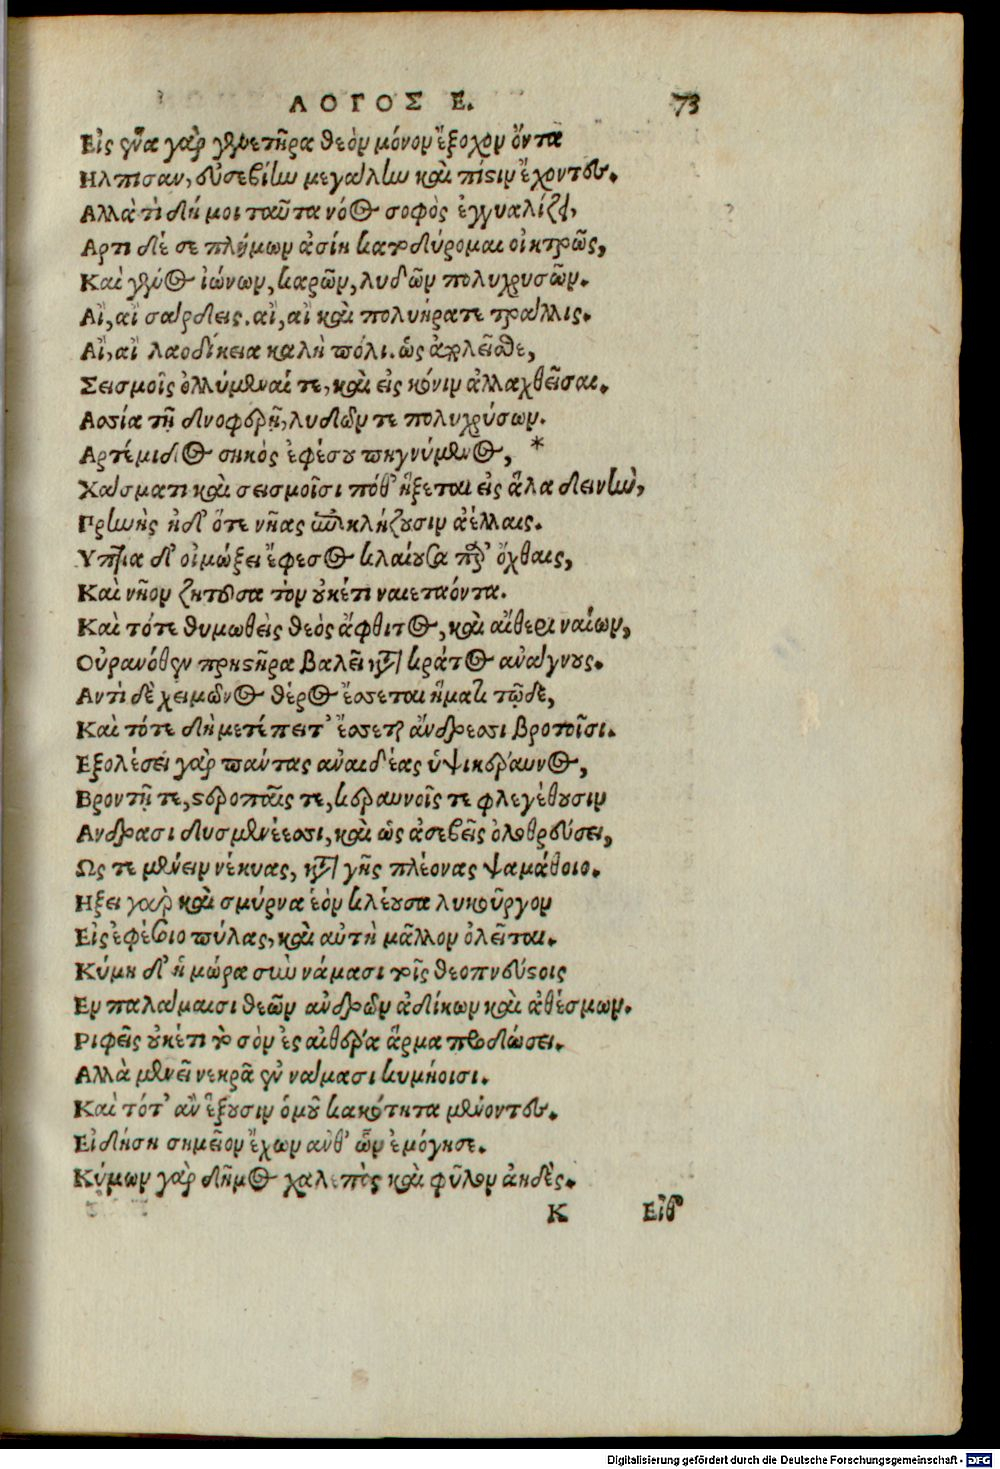 ΛΟΓΟΣ Ε. 73
Εἰς ἕνα γὰρ γενετῆρα θεὸν μόνον ἔξοχον ὄντα
Ηλπισαν, εὐσεβίην μεγάλην καὶ πίστιν ἔχοντες.
Αλλὰ τί δή μοι ταῦτα νόος σοφὸς ἐγγυαλίζει,
Αρτι δέ σε τλήμων ἀσίη κατοδύρομαι οἰκτρῶς,
Καὶ γένος ἰώνων, καρῶν, λυδῶν πολυχρυσῶν.
Αἲ, αἲ σάρδεις. αἲ, αἲ καὶ πολυήρατε τράλλις.
Αἲ, αἲ λαοδίκεια καλὴ πόλι. ὡς ἀπολεῖσθε,
Σεισμοῖς ὀλλύμεναί τε, καὶ εἰς κόνιν ἀλλαχθεῖσαι.
Ασία τῇ δνοφερῇ, λυδῶν τε πολυχρύσων.
Αρτέμιδος σηκὸς ἐφέσου πηγνύμενος, *
Χάσματι καὶ σεισμοῖσι πόθ' ἥξεται εἰς ἅλα δεινὴν,
Πρηνὴς ἠδ' ὅτε νῆας ἐπικλήζουσιν ἀέλλαις.
Υπτια δ' οἰμώξει ἔφεσος κλαίουσα παρ' ὄχθαις,
Καὶ νηὸν ζητοῦσα τὸν οὐκέτι ναιετάοντα.
Καὶ τότε θυμωθεὶς θεὸς ἄφθιτος, καὶ αἰθέρι ναίων,
Οὐρανόθεν πρηστῆρα βαλεῖ κατὰ κράτος ἀνάγνους.
Αντὶ δὲ χειμῶνος θέρος ἔσσεται ἤματι τῷδε,
Καὶ τότε δὴ μετέπειτ' ἔσσεται ἄνδρεσσι βροτοῖσι.
Εξολέσει γὰρ πάντας ἀναιδέας ὑψικέραυνος,
Βροντῇ τε, στεροπαῖς τε, κεραυνοῖς τε φλεγέθουσιν
Ανδράσι δυσμενέεσσι, καὶ ὡς ἀσεβεῖς ὀλοθρεύσει,
Ως τε μένειν νέκυας, κατὰ γῆς πλέονας ψαμάθοιο.
Ηξει γὰρ καὶ σμύρνα ἑὸν κλέουσα λυκοῦργον
Εἰς ἐφέσοιο πύλας, καὶ αὐτὴ μᾶλλον ὀλεῖται.
Κύμη δ' ἡ μώρα σὺν νάμασι τοῖς θεοπνεύστοις
Εν παλάμαισι θεῶν ἀνδρῶν ἀδίκων καὶ ἀθέσμων.
Ριφεῖς οὐκέτι τοσὸν ἐς αἰθέρα ἅρμα προδώσει.
Αλλὰ μενεῖ νεκρὰ ἐν νάμασι κυμήοισι.
Καὶ τότ' ἀνέξουσιν ὁμοῦ κακότητα μένοντες.
Εἰδήση σημεῖον ἔχων ἀνθ' ὧν ἐμόγησε.
Κύμων γὰρ δῆμος χαλεπὸς καὶ φῦλον ἀηδές.
K Εἶθ'
Digitalisierung gefördert durch die Deutsche Forschungsgemeinschaft - DFG